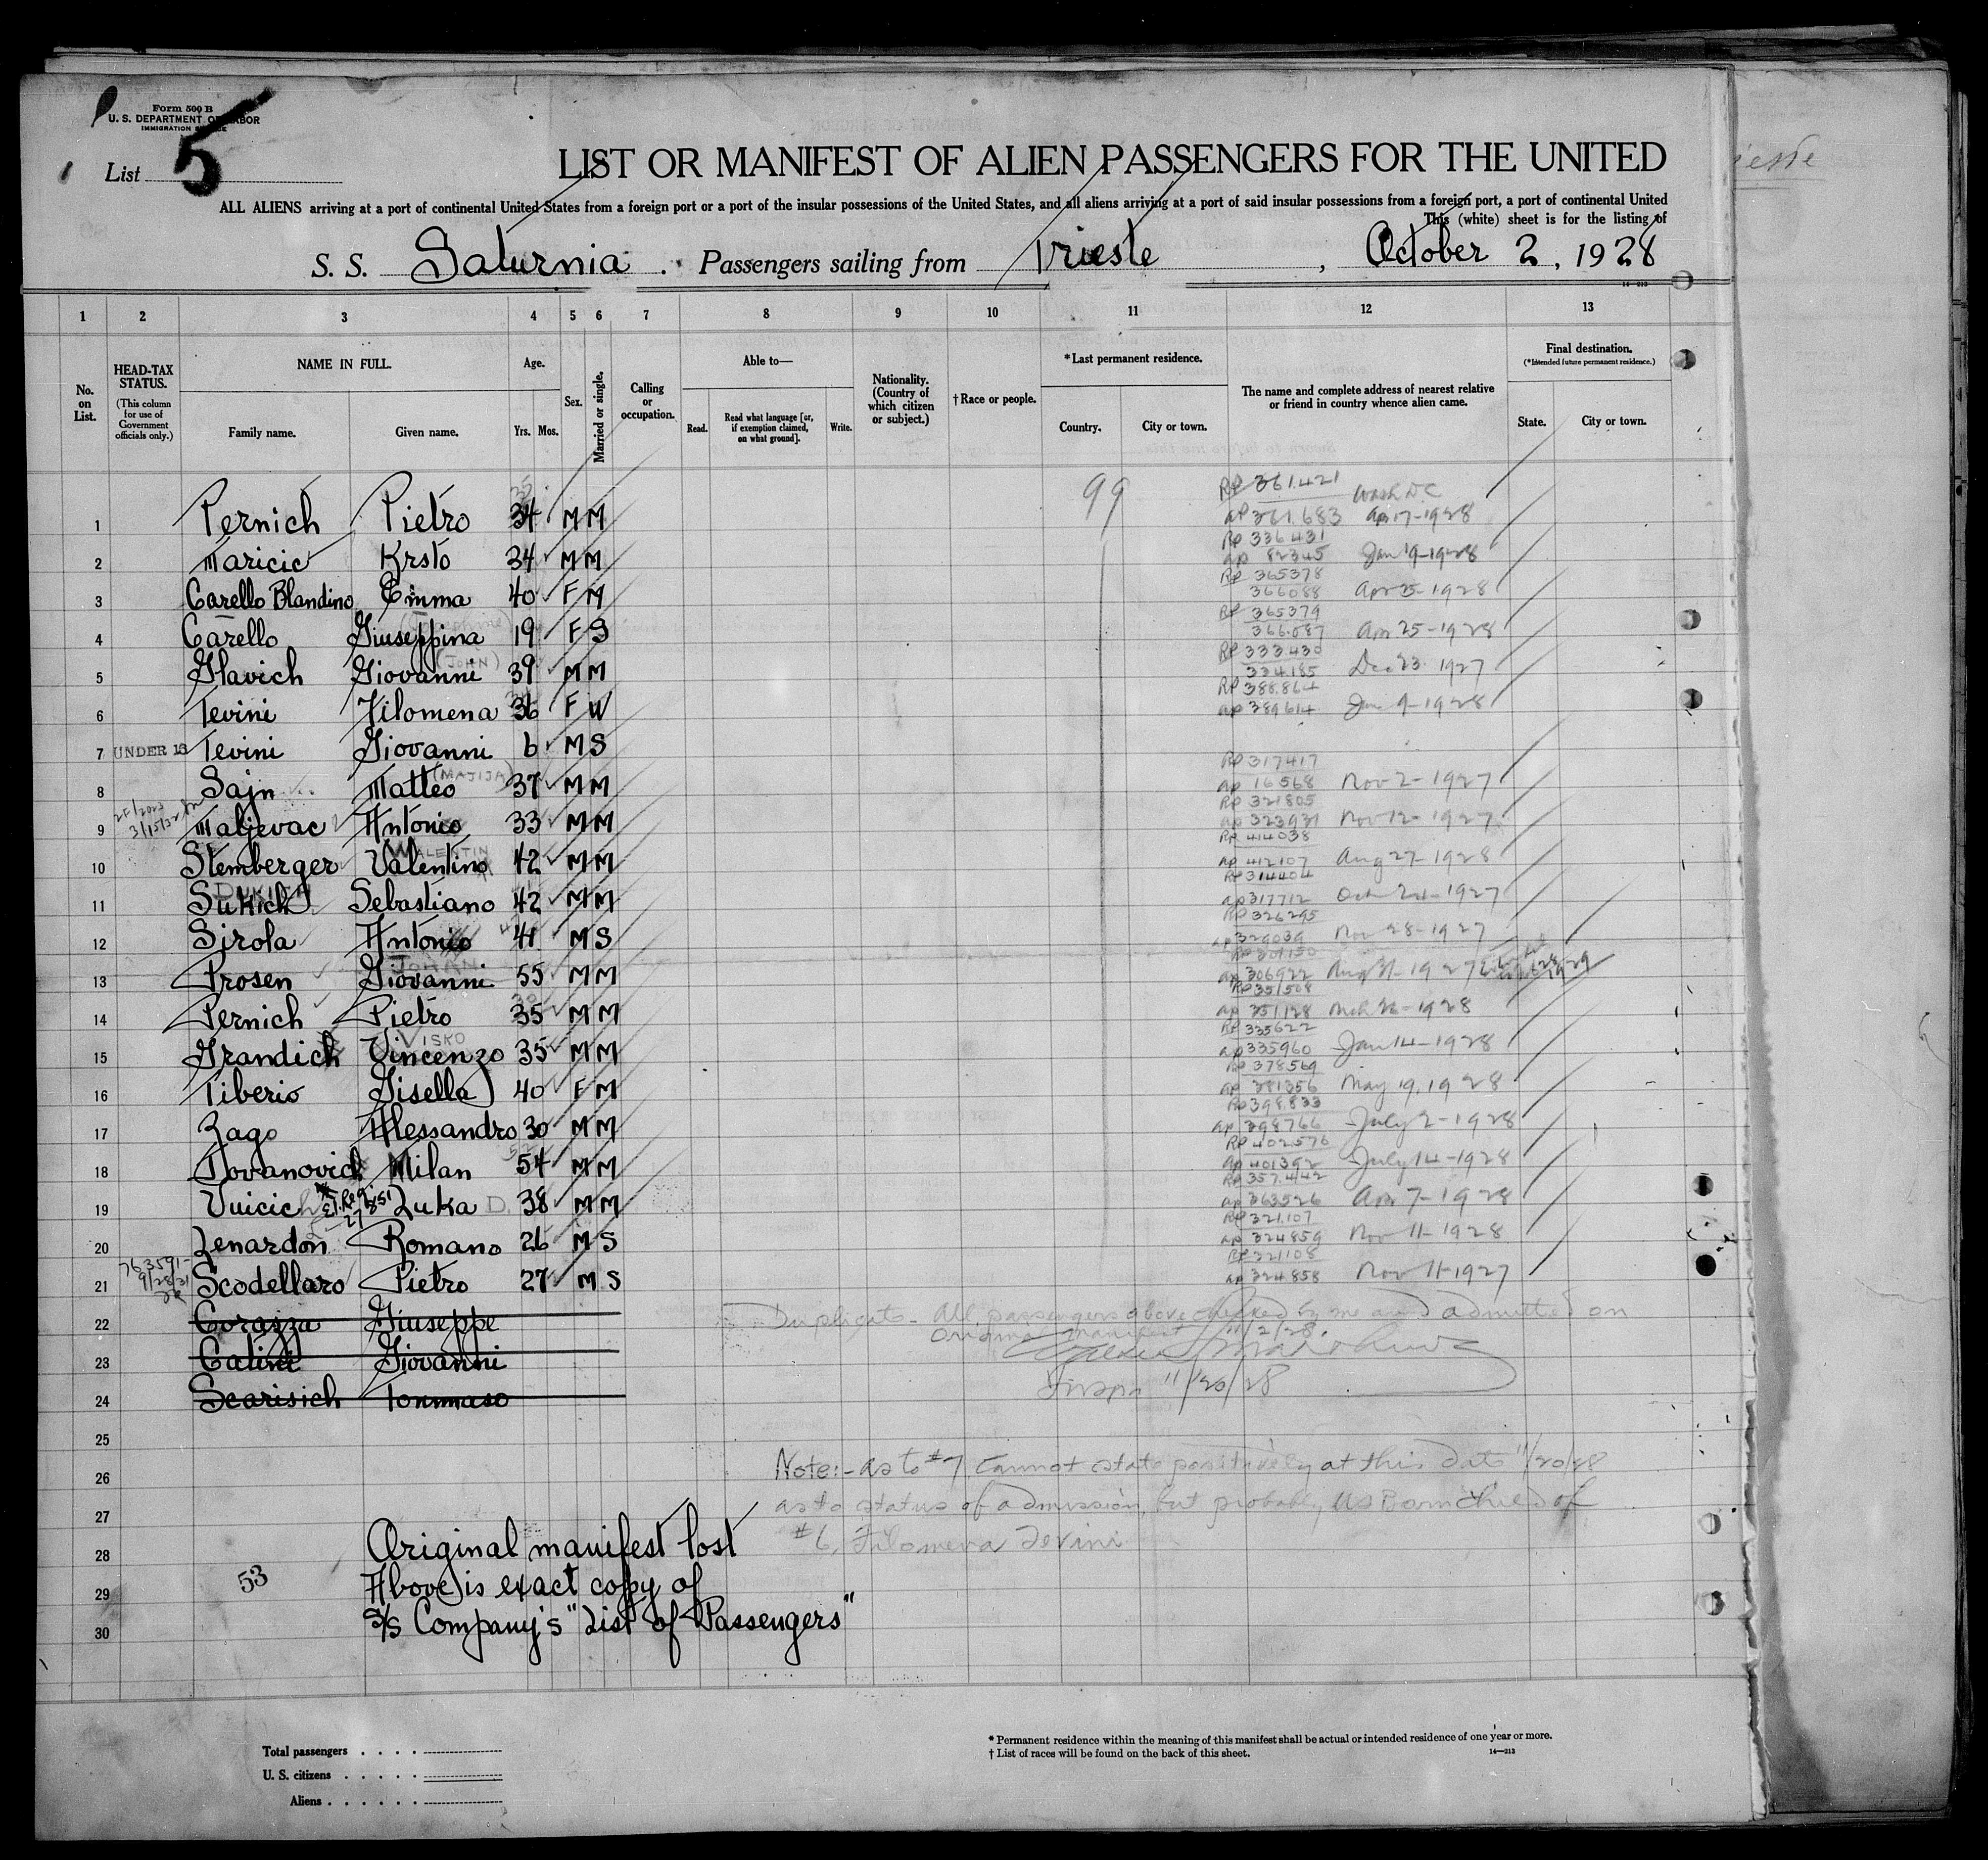 Form 500 B
U. S. DEPARTMENT OF LABOR
IMMIGRATION SERVICE
List 5
LIST OR MANIFEST OF ALIEN PASSENGERS FOR THE UNITED
ALL ALIENS arriving at a port of continental United States from a foreign port or a port of the insular possessions of the United States, and all aliens arriving at a port of said insular possessions from a foreign port, a port of continental United
This (white) sheet is for the listing of
S. S. Saturnia. Passengers sailing from Trieste, October 2, 1928
1 2 3 4 5 6 7 8 9 10 11 12 13
No. on List.
HEAD-TAX STATUS.
(This column for use of Government officials only.)
NAME IN FULL.
Family name. Given name.
Age.
Yrs. Mos.
Sex.
Married or single.
Calling or occupation.
Able to—
Read. Read what language [or, if exemption claimed, on what ground]. Write.
Nationality. (Country of which citizen or subject.)
† Race or people.
* Last permanent residence.
Country. City or town.
The name and complete address of nearest relative or friend in country whence alien came.
Final destination.
(* Intended future permanent residence.)
State. City or town.
99
1 Pernich Pietro 34 M M RP 361.421 Wash D.C. ap 361.683 Apr 17-1928
2 Maricic Krsto 34 M M RP 336431 ap 82345 Jan 19-1928
3 Carello Blandino Emma 40 F M RP 365378 366088 Apr 25-1928
4 Carello Giuseppina (Josephine) 19 F S RP 365379 366.087 Apr 25-1928
5 Glavich Giovanni (JOHN) 39 M M RP 333.430 334.185 Dec 23 1927
6 Tevini Filomena 36 F W RP 388.864 ap 389614 Jun 9-1928
7 UNDER 16 Tevini Giovanni 6 M S
8 Sajn Matteo (MAJIJA) 37 M M RP 317417 ap 16568 Nov 2-1927
9 Maljevac Antonio 33 M M RP 321805 ap 323931 Nov 12-1927
10 Stemberger Valentino WALENTIN 42 M M RP 414038 ap 412107 Aug 27-1928
11 Sukich DUKICH Sebastiano 42 M M RP 314404 ap 317712 Oct 24-1927
12 Sirola Antonio 41 M S RP 326295 ap 329039 Nov 28-1927
13 Prosen Giovanni JOHAN 55 M M ap 306922 Aug 31-1927
14 Pernich Pietro 35 M M RP 351508 ap 351.128 Mch 26-1928
15 Grandich Vincenzo VISKO 35 M M RP 335622 ap 335960 Jan 14-1928
16 Tiberio Gisella 40 F M RP 378569 ap 381356 May 19, 1928
17 Zago Alessandro 30 M M RP 398.833 ap 398766 July 2-1928
18 Jovanovich Milan 54 M M RP 402576 ap 401392 July 14-1928
19 Vuicich Luka D. 38 M M RP 357.442 ap 363526 Apr 7-1928
20 Zenardon Romano 26 M S RP 321.107 ap 324859 Nov 11-1928
21 Scodellaro Pietro 27 M S RP 321108 ap 324858 Nov 11-1927
22 Corazza Giuseppe
23 Catine Giovanni
24 Scarisich Tommaso
Duplicate - All passengers above checked by me and admitted on
original manifest 11/2/28.
Inspr 11/20/28
25
26
27
28
29
30
Note:- as to #7 Cannot state positively at this date 11/20/28
as to status of admission, but probably US Born child of
#6, Filomena Tevini
Original manifest lost
Above is exact copy of
S/S Company's "List of Passengers"
53
Total passengers
U. S. citizens
Aliens
* Permanent residence within the meaning of this manifest shall be actual or intended residence of one year or more.
† List of races will be found on the back of this sheet.
14—213